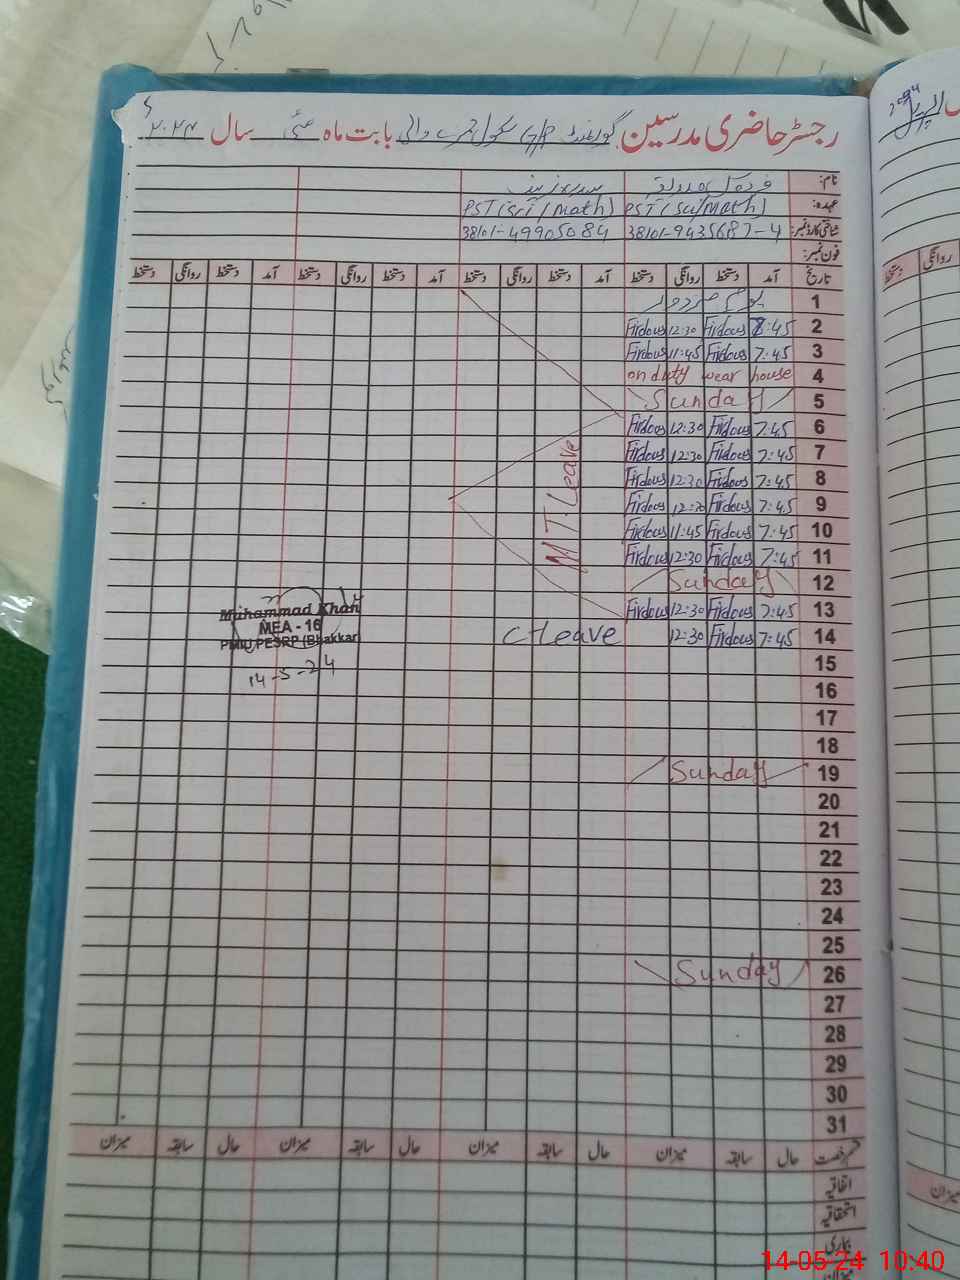 رجسٹر حاضری مدرسین گورنمنٹ G/P سکول والی بابت ماہ مئی سال ۲۰۲۴
نام:
عہدہ: PST (Sci/Math) PST (Sci/Math)
شناختی کارڈ نمبر: 38101-9435687-4 38101-4990508
فون نمبر:
تاریخ آمد دستخط روانگی دستخط آمد دستخط روانگی دستخط آمد دستخط روانگی دستخط آمد دستخط روانگی دستخط
1 یوم
2 8:45 Firdous 12:30 Firdous
3 7:45 Firdous 11:45 Firdous
4 on duty wear house
5 Sunday
6 7:45 Firdous 12:30 Firdous
7 7:45 Firdous 12:30 Firdous
8 7:45 Firdous 12:30 Firdous
9 7:45 Firdous 12:30 Firdous
10 7:45 Firdous 11:45 Firdous
11 7:45 Firdous 12:30 Firdous
Leave
12 Sunday
13 7:45 Firdous 12:30 Firdous
14 7:45 Firdous 12:30 C-Leave
Muhammad Khan
MEA - 16
PMIU PESRP (Bhakkar
14-5-24
15
16
17
18
19 Sunday
20
21
22
23
24
25
26 Sunday
27
28
29
30
31
قسم رخصت حال سابقہ میزان حال سابقہ میزان حال سابقہ میزان حال سابقہ میزان
اتفاقیہ
استحقاقیہ
بیماری
میزان
اپریل
روانگی دستخط
میزان
14-05-24 10:40